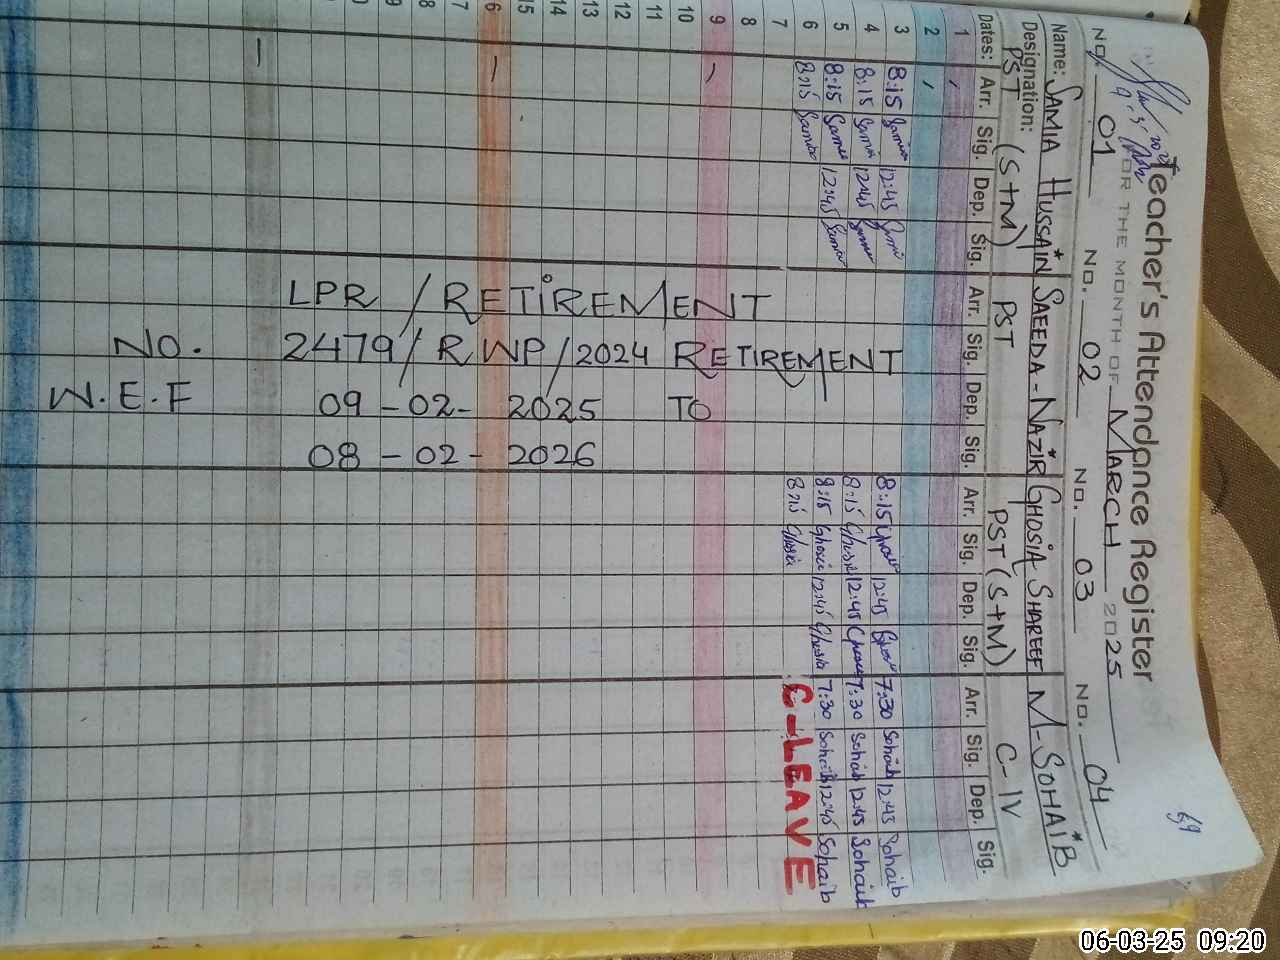 69
Teacher's Attendance Register
FOR THE MONTH OF MARCH 2025
No. 01 No. 02 No. 03 No. 04
Name: SAMIA HUSSAIN SAEEDA-NAZIR GHOSIA SHAREEF M-SOHAIB
Designation: PST (S+M) PST PST (S+M) C-IV
Dates: Arr. Sig. Dep. Sig. Arr. Sig. Dep. Sig. Arr. Sig. Dep. Sig. Arr. Sig. Dep. Sig.
1
2
3 8:15 Samia 12:45 Samia 8:15 Ghosia 12:45 Ghosia 7:30 Sohaib 12:45 Sohaib
4 8:15 Samia 12:45 Samia 8:15 Ghosia 12:45 Ghosia 7:30 Sohaib 12:45 Sohaib
5 8:15 Samia 12:45 Samia 8:15 Ghosia 12:45 Ghosia 7:30 Sohaib 12:45 Sohaib
6 8:15 Samia 8:15 Ghosia C-LEAVE
7
8
9
10
11
12
13
14
15
6
7
8
9
LPR / RETIREMENT
NO. 2479/RWP/2024 RETIREMENT
W.E.F 09-02-2025 TO
08-02-2026
06-03-25 09:20